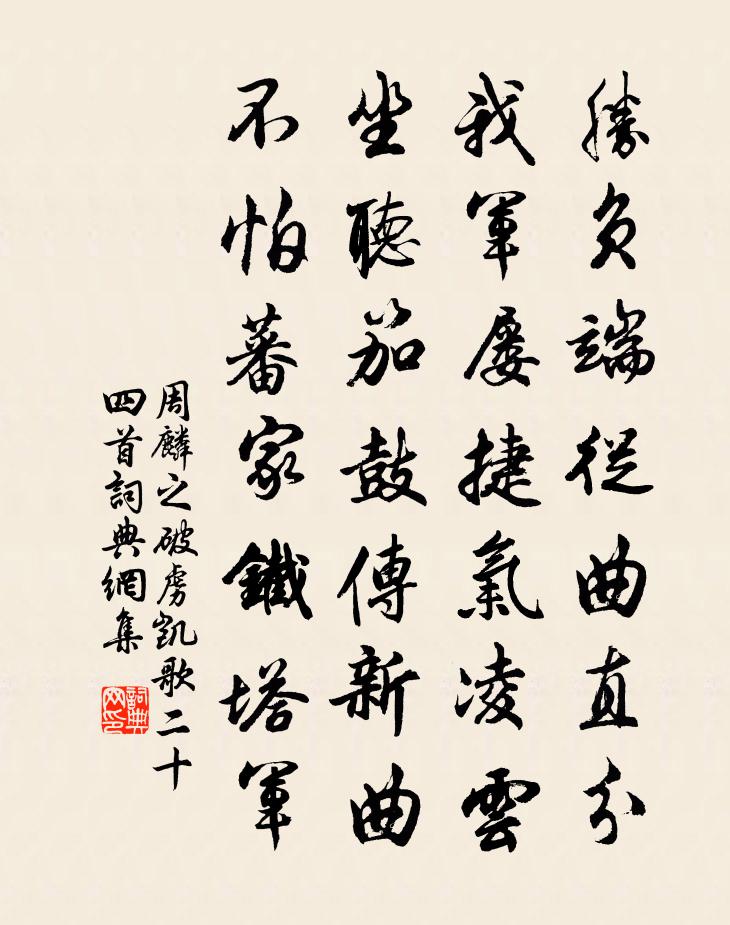 勝負端從曲直分
我軍屢捷氣凌雲
坐聽笳鼓傳新曲
不怕蕃家鐵塔軍
周麟之破虜凱歌二十
四首詞典網集
詞典网印